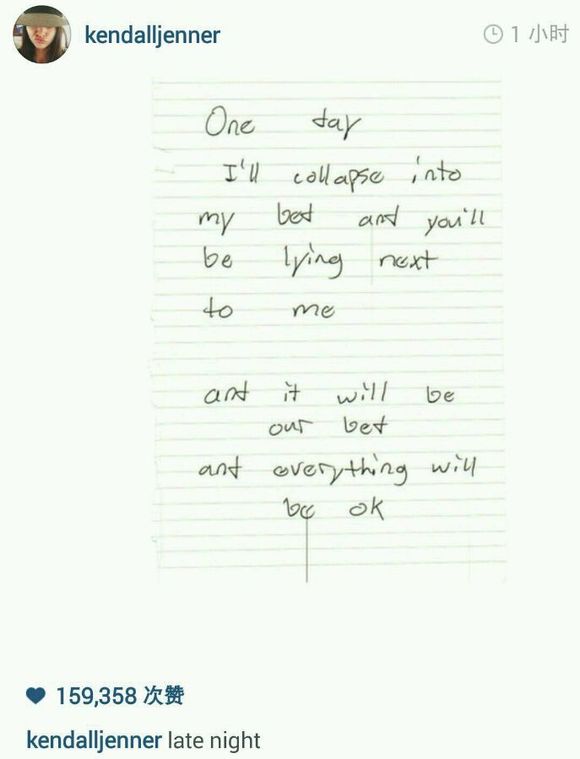 kendalljenner
1 小时
One day
I'll collapse into
my bed and you'll
be lying next
to me
and it will be
our bed
and everything will
be ok
159,358 次赞
kendalljenner late night